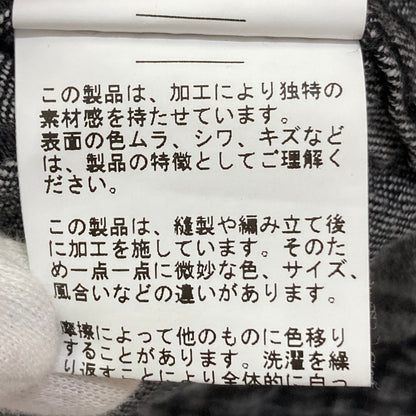 この製品は、加工により独特の
素材感を持たせています。
表面の色ムラ、シワ、キズなど
は、製品の特徴としてご理解く
ださい。
この製品は、縫製や編み立て後
に加工を施しています。そのた
め一点一点に微妙な色、サイズ、
風合いなどの違いがあります。
摩擦によって他のものに色移り
することがあります。洗濯を繰
り返すことにより全体的に白っ